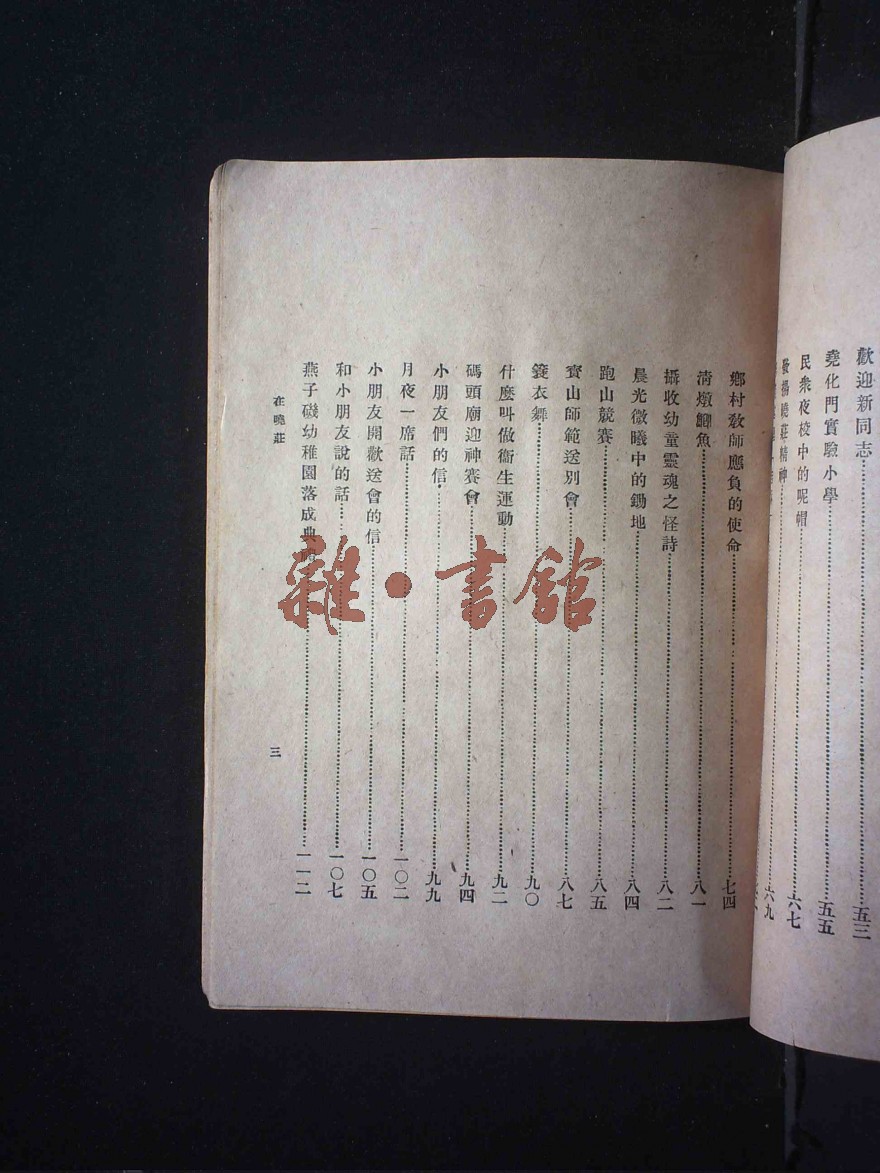 歡迎新同志…………五三
堯化門實驗小學…………五五
民衆夜校中的呢帽…………六七
發揚曉莊精神…………六九
鄉村敎師應負的使命…………七四
淸燉鯽魚…………八一
攝收幼童靈魂之怪詩…………八二
晨光微曦中的鋤地…………八四
跑山競賽…………八五
寳山師範送別會…………八七
簑衣舞…………九〇
什麽叫做衞生運動…………九二
碼頭廟迎神賽會…………九四
小朋友們的信…………九九
月夜一席話…………一〇二
小朋友開歡送會的信…………一〇五
和小朋友說的話…………一〇七
燕子磯幼稚園落成典…………一一二
在曉莊
三
雜·書館